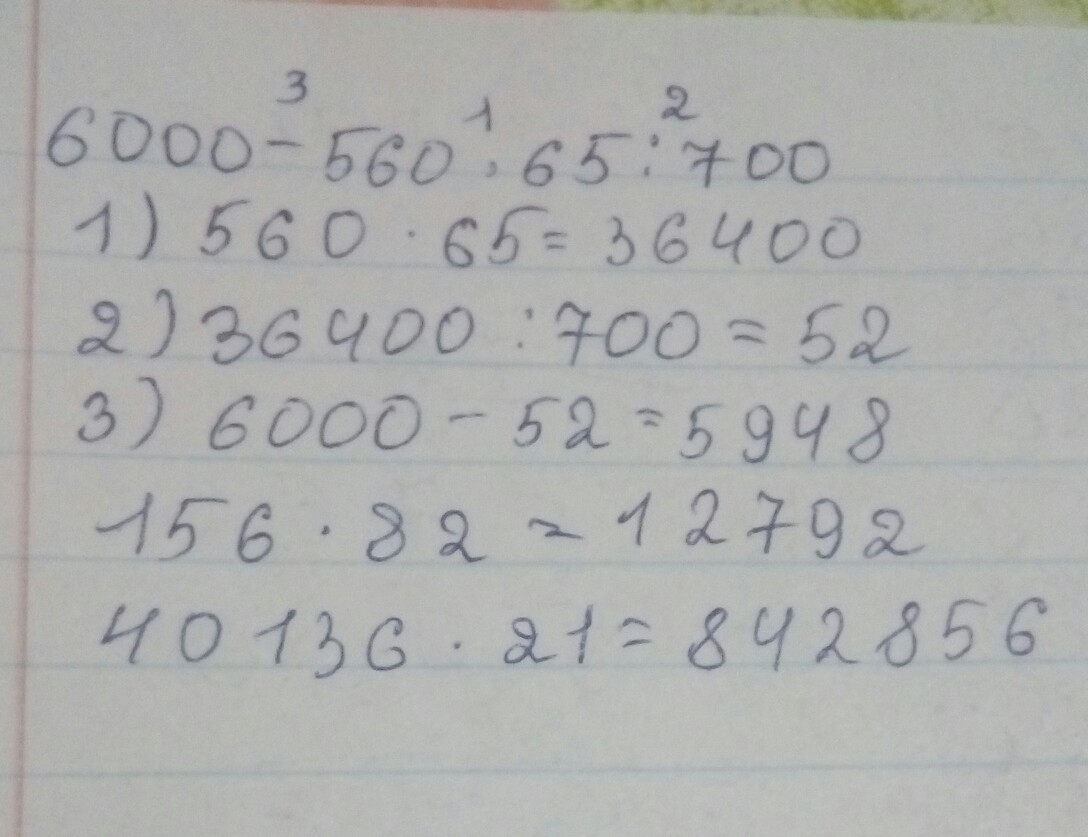 3 1 2
6000 - 560 · 65 : 700
1) 560 · 65 = 36400
2) 36400 : 700 = 52
3) 6000 - 52 = 5948
156 · 82 = 12792
40136 · 21 = 842856